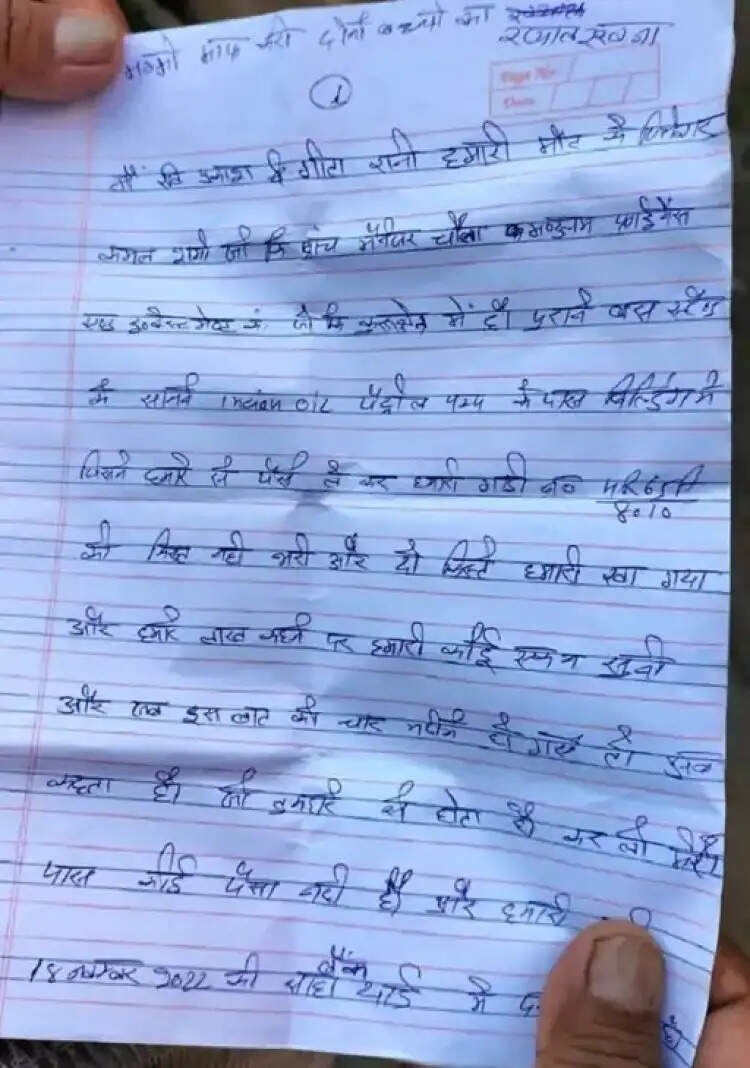 मुझको माफ करो दोनों बच्चों का
ख्याल रखना
1
Page No.
Date
मैं प्रकाश व गीता रानी हमारी मौत के जिम्मेदार
कमल शर्मा जो कि ब्रांच मैनेजर चोला फाईनेंस
जो कि कुरुक्षेत्र में है। पुराने बस स्टैंड
के सामने Indian OIL पेट्रोल पम्प के पास बिल्डिंग में
जिसने हमारे से पैसे ले कर हमारी गाडी न०
8010
की किस्त नही भरी और दो किस्ते हमारी खा गया
और हमारे लाख कहने पर हमारी कोई एक न सुनी
और अब इस बात को चार महीने हो गये तो अब
कहता है। जो तुमारे से होता है कर लो मेरे
पास कोई पैसा नही है और हमारी
18 नवम्बर 2022 को बैंक यार्ड में
है